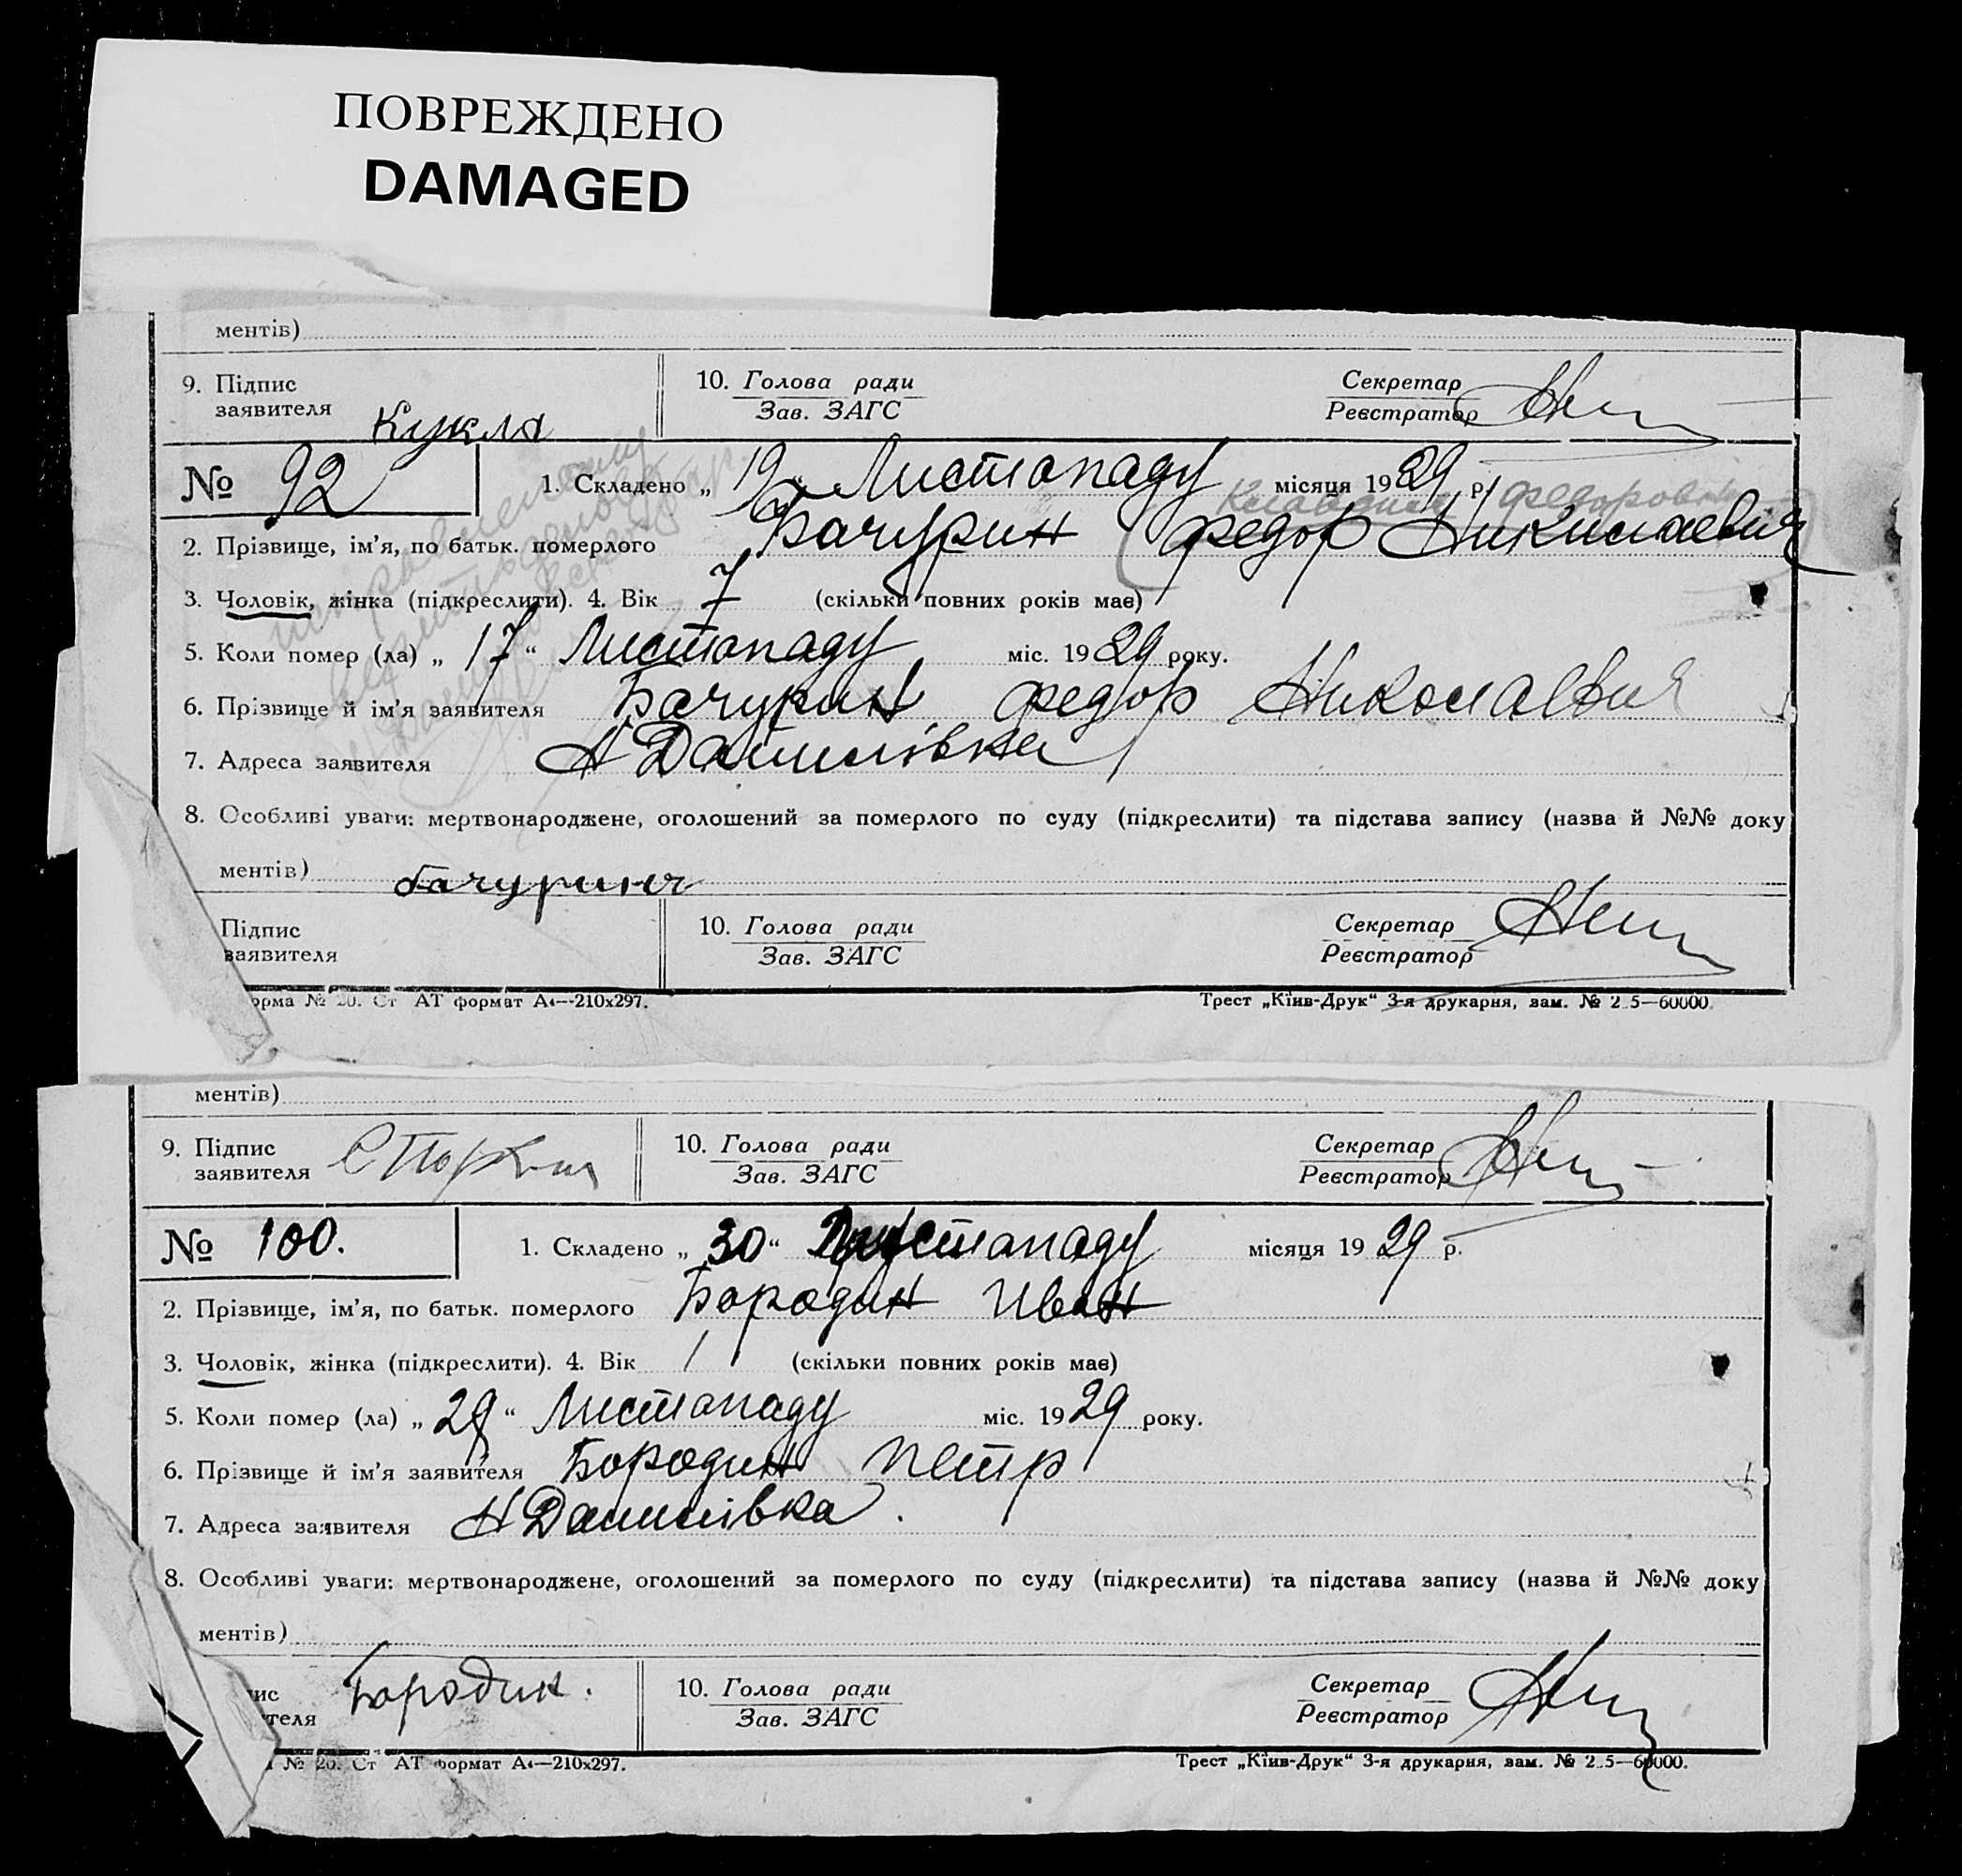 ПОВРЕЖДЕНО
DAMAGED
ментів)
9. Підпис заявителя Кукла 10. Голова ради Зав. ЗАГС Секретар Реєстратор
№ 92 1. Складено „ 19 “ Листопаду місяця 1929 р.
Клавдия Федоровна
2. Прізвище, ім'я, по батьк. померлого Бачурин (Федор Николаевич)
3. Чоловік, жінка (підкреслити). 4. Вік 7 (скільки повних років має)
5. Коли помер (ла) „ 17 “ Листопаду міс. 1929 року.
6. Прізвище й ім'я заявителя Бачурин Федор Николаевич
7. Адреса заявителя Н Данилівка
8. Особливі уваги: мертвонароджене, оголошений за померлого по суду (підкреслити) та підстава запису (назва й №№ доку
ментів) бачурин
Підпис заявителя 10. Голова ради Зав. ЗАГС Секретар Реєстратор
орма № 20. Ст АТ формат А4—210х297. Трест „Київ-Друк“ 3-я друкарня, зам. № 2 5—60000.
ментів)
9. Підпис заявителя 10. Голова ради Зав. ЗАГС Секретар Реєстратор
№ 100. 1. Складено „ 30 “ Листопаду місяця 1929 р.
2. Прізвище, ім'я, по батьк. померлого Бородин Иван
3. Чоловік, жінка (підкреслити). 4. Вік 1 (скільки повних років має)
5. Коли помер (ла) „ 29 “ Листопаду міс. 1929 року.
6. Прізвище й ім'я заявителя Бородин Петр
7. Адреса заявителя Н Данилівка.
8. Особливі уваги: мертвонароджене, оголошений за померлого по суду (підкреслити) та підстава запису (назва й №№ доку
ментів)
ис теля Бородин. 10. Голова ради Зав. ЗАГС Секретар Реєстратор
№ 20. Ст АТ формат А4—210х297. Трест „Київ-Друк“ 3-я друкарня, зам. № 2 5—60000.